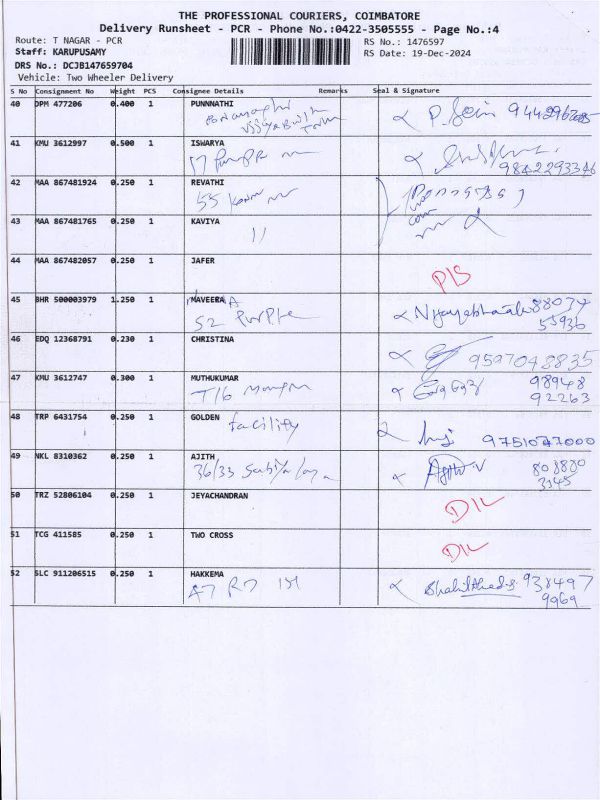 THE PROFESSIONAL COURIERS, COIMBATORE
Delivery Runsheet - PCR - Phone No.:0422-3505555 - Page No.:4
Route: T NAGAR - PCR RS No.: 1476597
Staff: KARUPUSAMY RS Date: 19-Dec-2024
DRS No.: DCJB147659704
Vehicle: Two Wheeler Delivery
S No Consignment No Weight PCS Consignee Details Remarks Seal & Signature
40 DPM 477206 0.400 1 PUNNNATHI
41 KMU 3612997 0.500 1 ISWARYA
9842293346
42 MAA 867481924 0.250 1 REVATHI
55
43 MAA 867481765 0.250 1 KAVIYA
11
44 MAA 867482057 0.250 1 JAFER
45 BHR 500003979 1.250 1 MAVEERA
52 Purple 88074
55936
46 EDQ 12368791 0.230 1 CHRISTINA
9597048835
47 KMU 3612747 0.300 1 MUTHUKUMAR
T16 98948
92263
48 TRP 6431754 0.250 1 GOLDEN facility
9751047000
49 NKL 8310362 0.250 1 AJITH
36/33
50 TRZ 52806104 0.250 1 JEYACHANDRAN
DIL
51 TCG 411585 0.250 1 TWO CROSS
DIL
52 SLC 911206515 0.250 1 HAKKEMA
A7 938497
9969